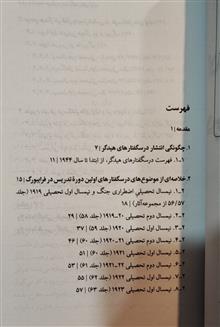 فهرست
مقدمه | ۱
۱. چگونگی انتشار درسگفتارهای هیدگر | ۷
۱ـ۱. فهرست درسگفتارهای هیدگر، از ابتدا تا سال ۱۹۴۴ | ۱۱
۲. خلاصه‌ای از موضوع‌های درسگفتارهای اولین دورهٔ تدریس در فرایبورگ | ۱۵
۲ـ۱. نیمسال تحصیلی اضطراری جنگ و نیمسال اول تحصیلی ۱۹۱۹ (جلد
۵۶/۵۷ از مجموعه‌آثار) | ۱۸
۲ـ۲. نیمسال دوم تحصیلی ۲۰ـ۱۹۱۹ (جلد ۵۸) | ۲۹
۲ـ۳. نیمسال اول تحصیلی ۱۹۲۰ (جلد ۵۹) | ۳۷
۲ـ۴. نیمسال دوم تحصیلی ۲۱ـ۱۹۲۰ (جلد ۶۰) | ۴۶
۲ـ۵. نیمسال اول تحصیلی ۱۹۲۱ (جلد ۶۰) | ۵۱
۲ـ۶. نیمسال دوم تحصیلی ۲۲ـ۱۹۲۱ (جلد ۶۱) | ۵۳
۲ـ۷. نیمسال اول تحصیلی ۱۹۲۲ (جلد ۶۲) | ۵۵
۲ـ۸. نیمسال اول تحصیلی ۱۹۲۳ (جلد ۶۳) | ۵۷